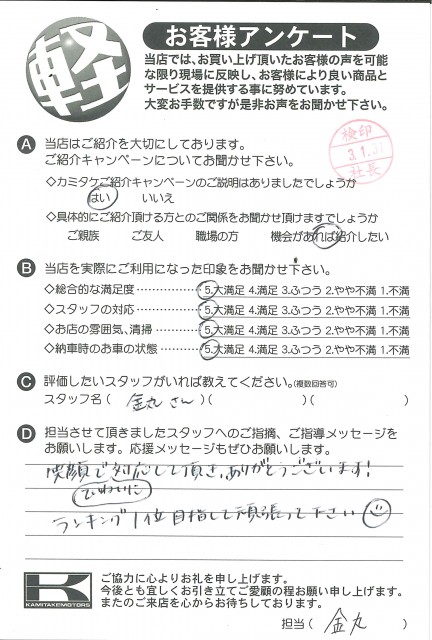 軽
お客様アンケート
当店では、お買い上げ頂いたお客様の声を可能
な限り現場に反映し、お客様により良い商品と
サービスを提供する事に努めています。
大変お手数ですが是非お声をお聞かせ下さい。
検印
3.1.31
社長
A 当店はご紹介を大切にしております。
ご紹介キャンペーンについてお聞かせ下さい。
◇カミタケご紹介キャンペーンのご説明はありましたでしょうか
はい いいえ
◇具体的にご紹介頂ける方とのご関係をお聞かせ頂けますでしょうか
ご親族 ご友人 職場の方 機会があれば紹介したい
B 当店を実際にご利用になった印象をお聞かせ下さい。
◇総合的な満足度 5.大満足 4.満足 3.ふつう 2.やや不満 1.不満
◇スタッフの対応 5.大満足 4.満足 3.ふつう 2.やや不満 1.不満
◇お店の雰囲気、清掃 5.大満足 4.満足 3.ふつう 2.やや不満 1.不満
◇納車時のお車の状態 5.大満足 4.満足 3.ふつう 2.やや不満 1.不満
C 評価したいスタッフがいれば教えてください。(複数回答可)
スタッフ名( 金丸さん )( )( )
D 担当させて頂きましたスタッフへのご指摘、ご指導メッセージを
お願いします。応援メッセージもぜひお願いします。
笑顔で対応して頂き、ありがとうございます!
ていねいに
ランキング1位目指して頑張って下さい
K
KAMITAKEMOTORS
ご協力に心よりお礼を申し上げます。
今後とも宜しくお引き立てご愛顧の程お願い申し上げます。
またのご来店を心からお待ちしております。
担当( 金丸 )